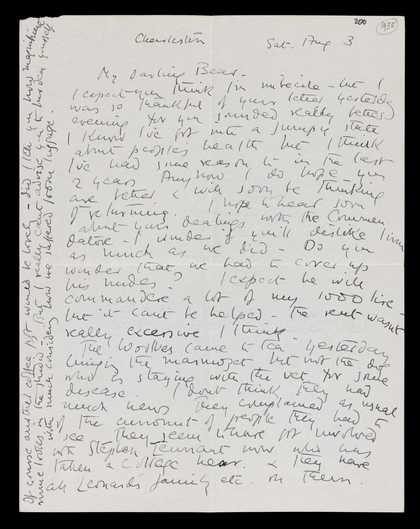 200
1935
Charleston Sat. Aug 3
My darling Bear.
I expect you think I'm imbecile - but I
was so thankful of your letter yesterday
evening for you sounded really better
I know I've got into a jumpy state
about peoples health but I think
I've had some reason to in the last
2 years. Anyhow I do hope you
are better & will soon be thinking
of returning. I hope to hear soon
about your dealings with the Commen
datore - I wonder if you'll dislike him
as much as we did - Do you
wonder that we had to cover up
his nudes - I expect he will
commandeer a lot of my 1000 lire -
but it cant be helped - the rent wasnt
really excessive I think.
The Woolves came to tea yesterday
bringing the marmoset but not the dog
who is staying with the vet for some
disease. I dont think they had
much news they complained as usual
of the amount of people they had to
see. They seem to have got involved
with Stephen Tennant now who has
taken a cottage near. & they have
all Leonards family etc. on them.
Of course another coffee pot would be lovely - did I tell you how magnificent
mine looks in the studio. But I really cant advise you to burden yourself
with much considering how we suffered from luggage.